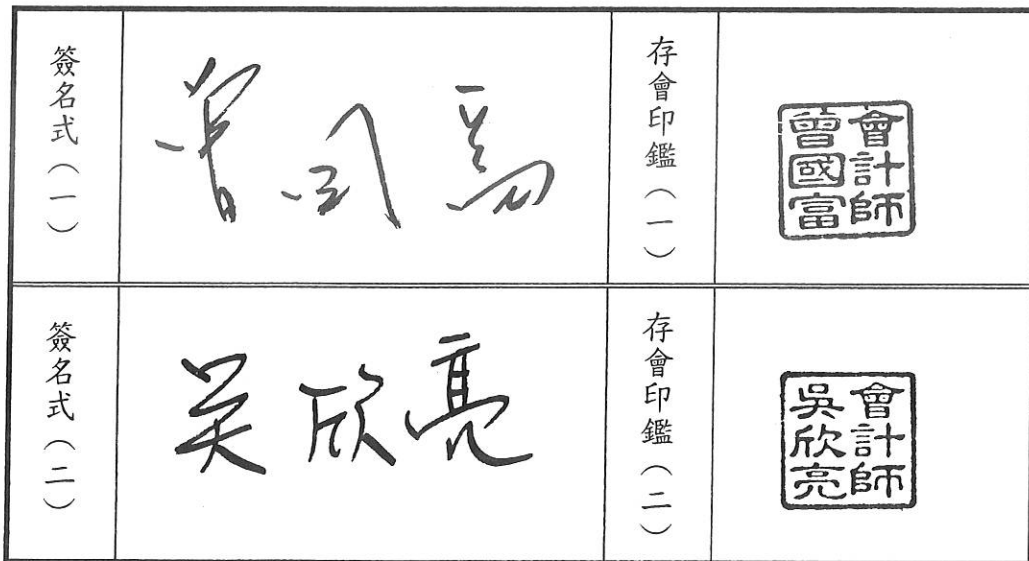 簽名式（一）
曾國富
存會印鑑（一）
會計師
曾國富
簽名式（二）
吳欣亮
存會印鑑（二）
會計師
吳欣亮